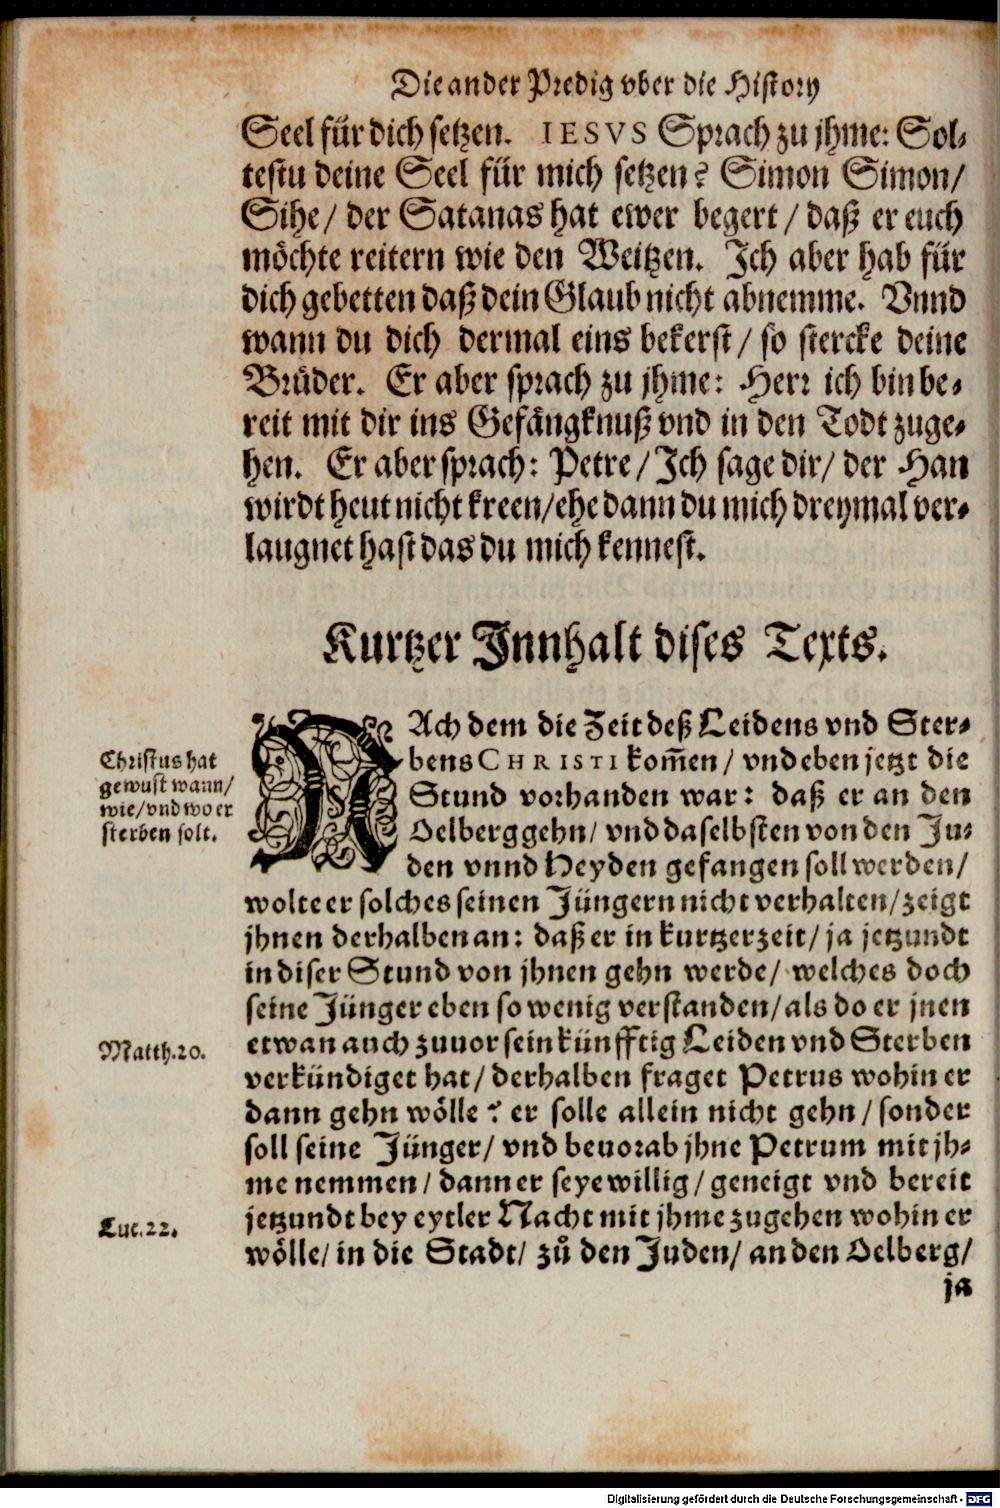 Die ander Predig vber die History
Seel für dich setzen. IESVS Sprach zu jhme: Sol-
testu deine Seel für mich setzen? Simon Simon/
Sihe/ der Satanas hat ewer begert/ daß er euch
möchte reitern wie den Weitzen. Ich aber hab für
dich gebetten daß dein Glaub nicht abnemme. Vnnd
wann du dich dermal eins bekerst/ so stercke deine
Brüder. Er aber sprach zu jhme: Herr ich bin be-
reit mit dir ins Gefängknuß vnd in den Todt zuge-
hen. Er aber sprach: Petre/ Ich sage dir/ der Han
wirdt heut nicht kreen/ ehe dann du mich dreymal ver-
laugnet hast das du mich kennest.
Kurtzer Innhalt dises Texts.
Christus hat
gewust wann/
wie/ vnd wo er
sterben solt.
NAch dem die Zeit deß Leidens vnd Ster-
bens CHRISTI kom̄en/ vnd eben jetzt die
Stund vorhanden war: daß er an den
Oelberg gehn/ vnd daselbsten von den Ju-
den vnnd Heyden gefangen soll werden/
wolte er solches seinen Jüngern nicht verhalten/ zeigt
jhnen derhalben an: daß er in kurtzer zeit/ ja jetzundt
in diser Stund von jhnen gehn werde/ welches doch
seine Jünger eben so wenig verstanden/ als do er jnen
Matth.20.
etwan auch zuuor sein künfftig Leiden vnd Sterben
verkündiget hat/ derhalben fraget Petrus wohin er
dann gehn wölle? er solle allein nicht gehn/ sonder
soll seine Jünger/ vnd beuorab jhne Petrum mit jh-
me nemmen/ dann er seye willig/ geneigt vnd bereit
Luc.22.
jetzundt bey eytler Nacht mit jhme zugehen wohin er
wölle/ in die Stadt/ zů den Juden/ an den Oelberg/
ja
Digitalisierung gefördert durch die Deutsche Forschungsgemeinschaft - DFG